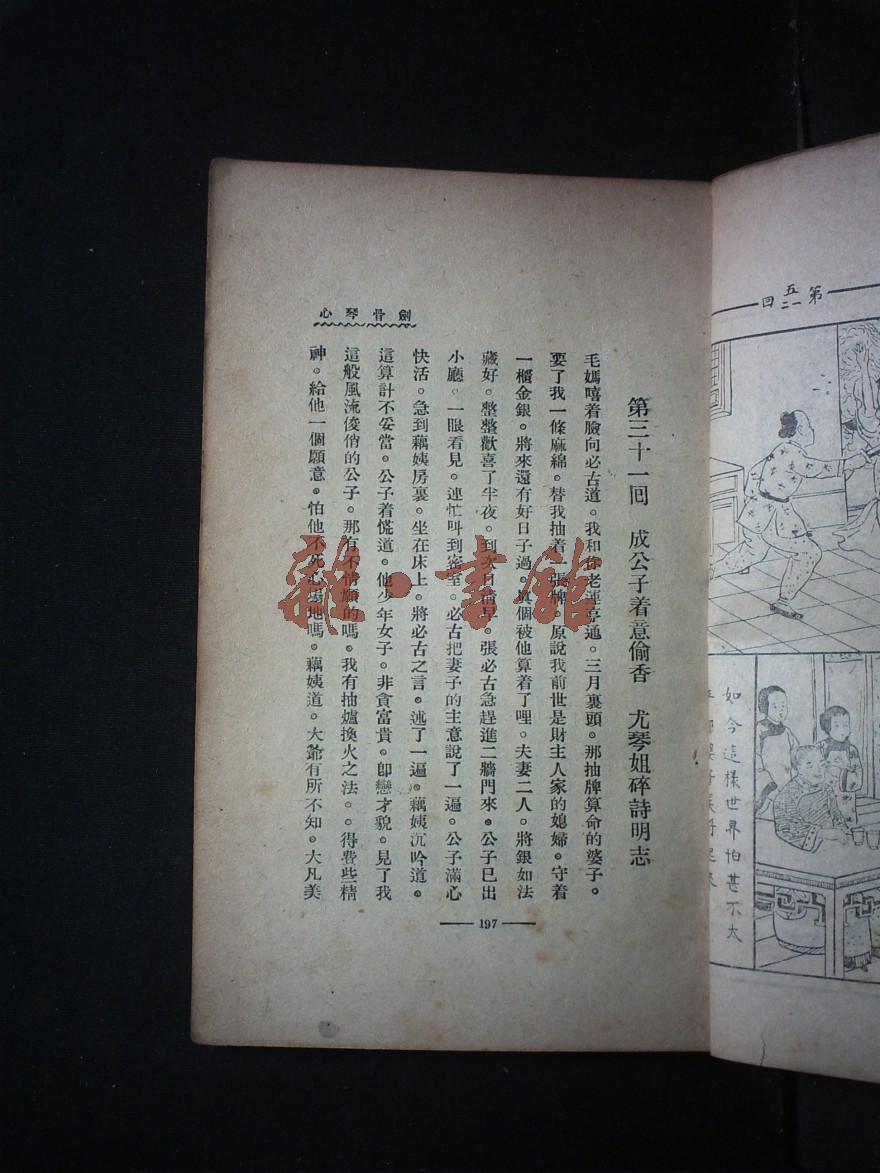 劍骨琴心
第三十一回　成公子着意偷香　尤琴姐碎詩明志
毛媽嘻着臉向必古道。我和你老運亨通。三月裏頭。那抽牌算命的婆子。
要了我一條麻綿。替我抽着一張牌。原說我前世是財主人家的媳婦。守着
一櫃金銀。將來還有好日子過。眞個被他算着了哩。夫妻二人。將銀如法
藏好。整整歡喜了半夜。到次日清早。張必古急趕進二牆門來。公子已出
小廳。一眼看見。連忙叫到密室。必古把妻子的主意說了一遍。公子滿心
快活。急到藕姨房裏。坐在床上。將必古之言。述了一遍。藕姨沉吟道。
這算計不妥當。公子着慌道。他少年女子。非貪富貴。卽戀才貌。見了我
這般風流俊俏的公子。那有不情願的嗎。我有抽爐換火之法。得費些精
神。給他一個願意。怕他不死心塌地嗎。藕姨道。大爺有所不知。大凡美
197
第五一二四
如今這樣世界怕甚不太
雜·書館